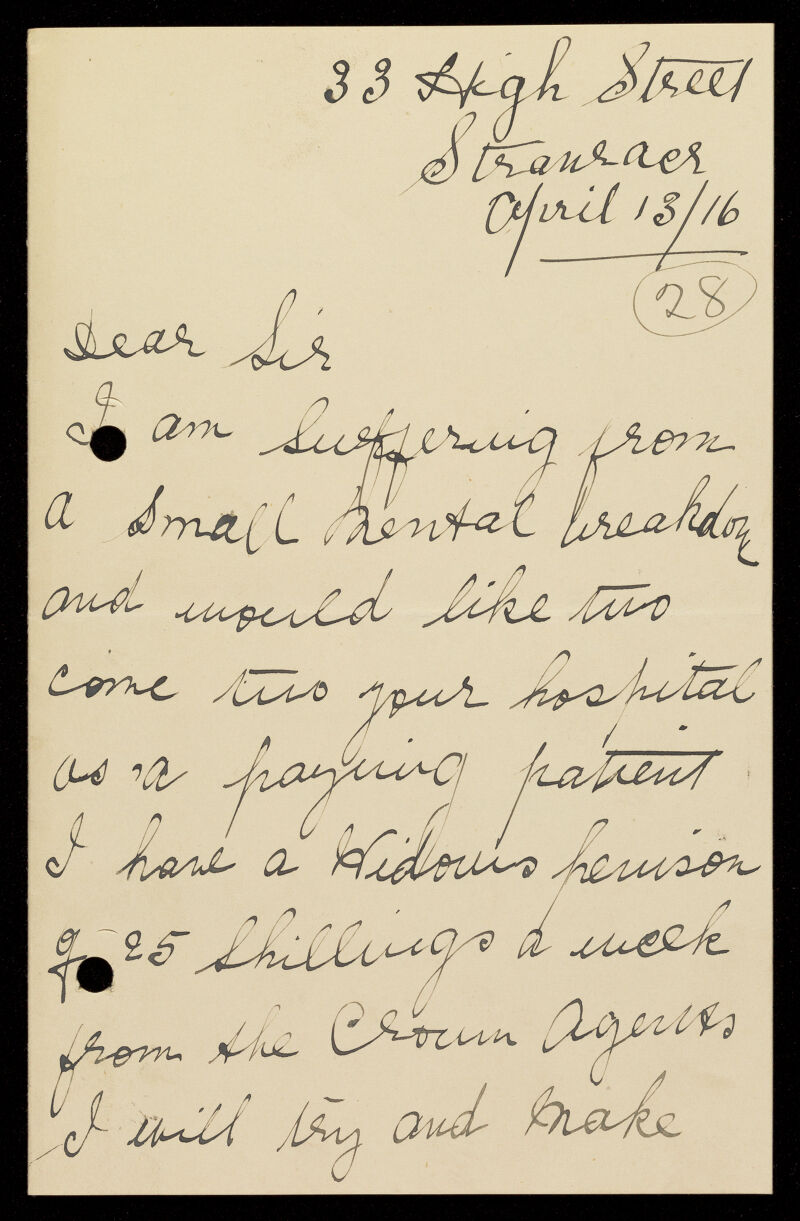 33 High Street
Stranraer
April 13/16
28
Dear Sir
I am suffering from
a small mental breakdow
and would like two
come two your hospital
as a paying patient
I have a Widows penison
of 25 shillings a week
from the Crown Agents
I will try and make